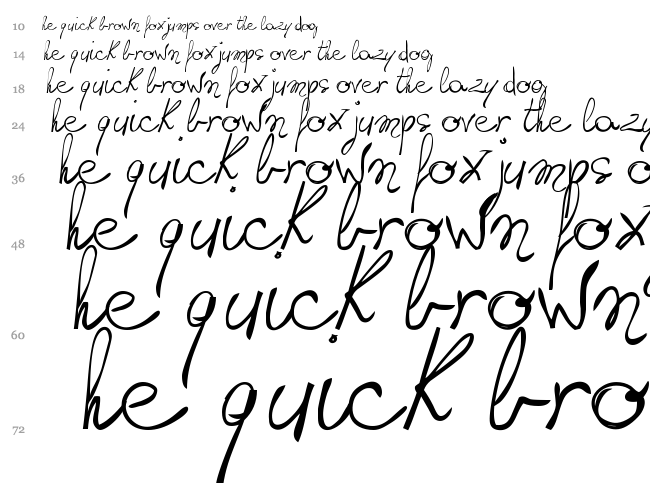 10 he quick brown fox jumps over the lazy dog
14 he quick brown fox jumps over the lazy dog
18 he quick brown fox jumps over the lazy dog
24 he quick brown fox jumps over the lazy
36 he quick brown fox jumps o
48 he quick brown fox
60 he quick brown
72 he quick bro